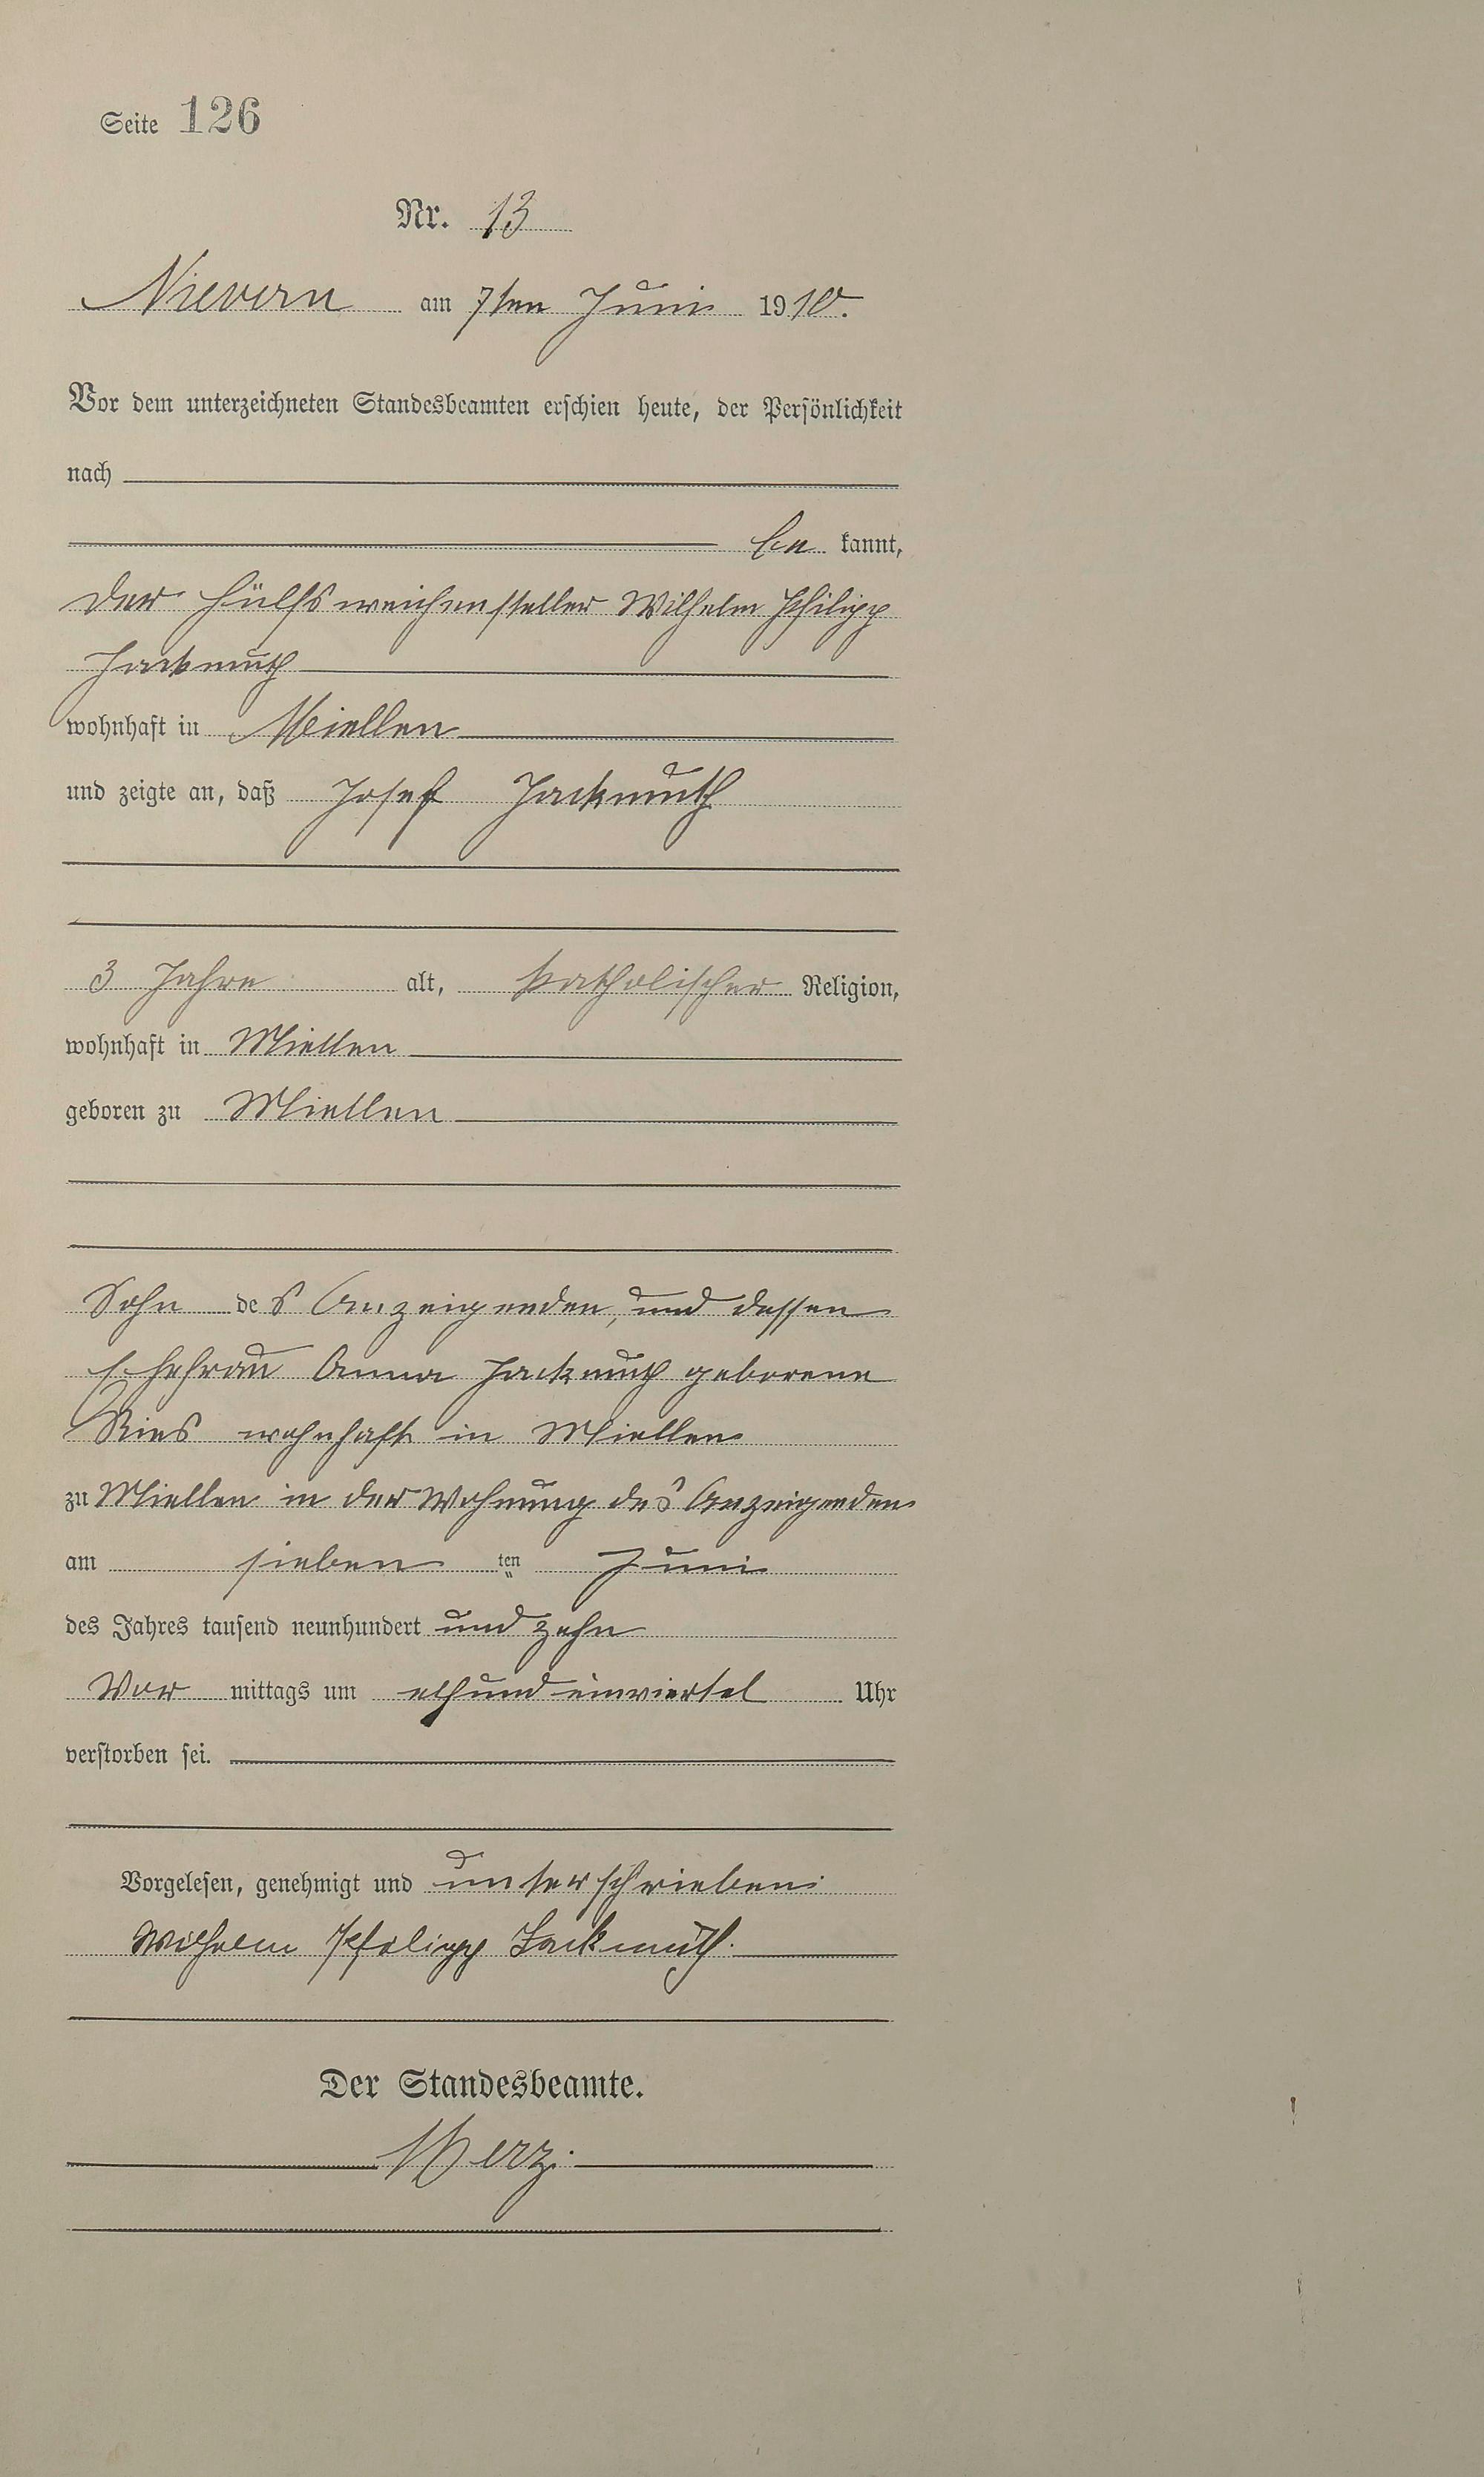 Seite 126
Nr. 13
Nievern am 7ten Juni 1910.
Vor dem unterzeichneten Standesbeamten erschien heute, der Persönlichkeit
nach
be kannt,
der Hülfsweichensteller Wilhelm Philipp
Jackmuth
wohnhaft in Miellen
und zeigte an, daß Josef Jackmuth
3 Jahre alt, katholischer Religion,
wohnhaft in Miellen
geboren zu Miellen
Sohn des Anzeigenden, und dessen
Ehefrau Anna Jackmuth geborene
Ries wohnhaft in Miellen
zu Miellen in der Wohnung des Anzeigenden
am sieben ten Juni
des Jahres tausend neunhundert und zehn
Vor mittags um elfundeinviertel Uhr
verstorben sei.
Vorgelesen, genehmigt und unterschrieben
Wilhelm Philipp Jackmuth.
Der Standesbeamte.
Merz.